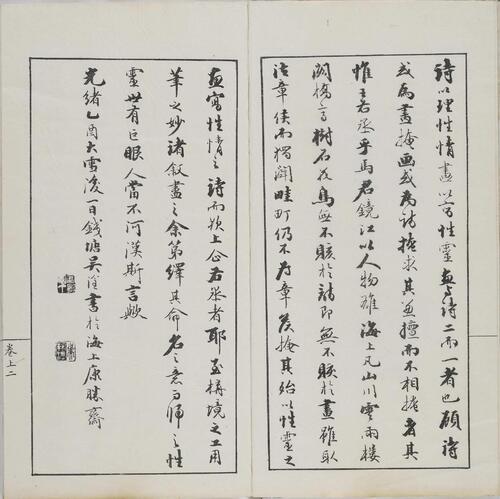 詩以理性情畫以寫性靈畫與詩二而一者也顧詩
或為畫掩画或為詩掩求其兼擅而不相掩者其
惟王右丞乎馬君鏡江以人物雄海上凡山川雲雨樓
閣橋亭樹石花鳥無不賅於詩即無不賅於畫雖取
法章侯而獨闢畦町仍不为章侯掩其殆以性靈之
畫寫性情之詩而欲上企右丞者耶至構境之工用
筆之妙諸叙盡之余第繹其命名之意而歸之性
靈世有巨眼人當不河漢斯言歟
光緒乙酉大雪後一日錢塘吳淦書於海上康勝齋
卷上二